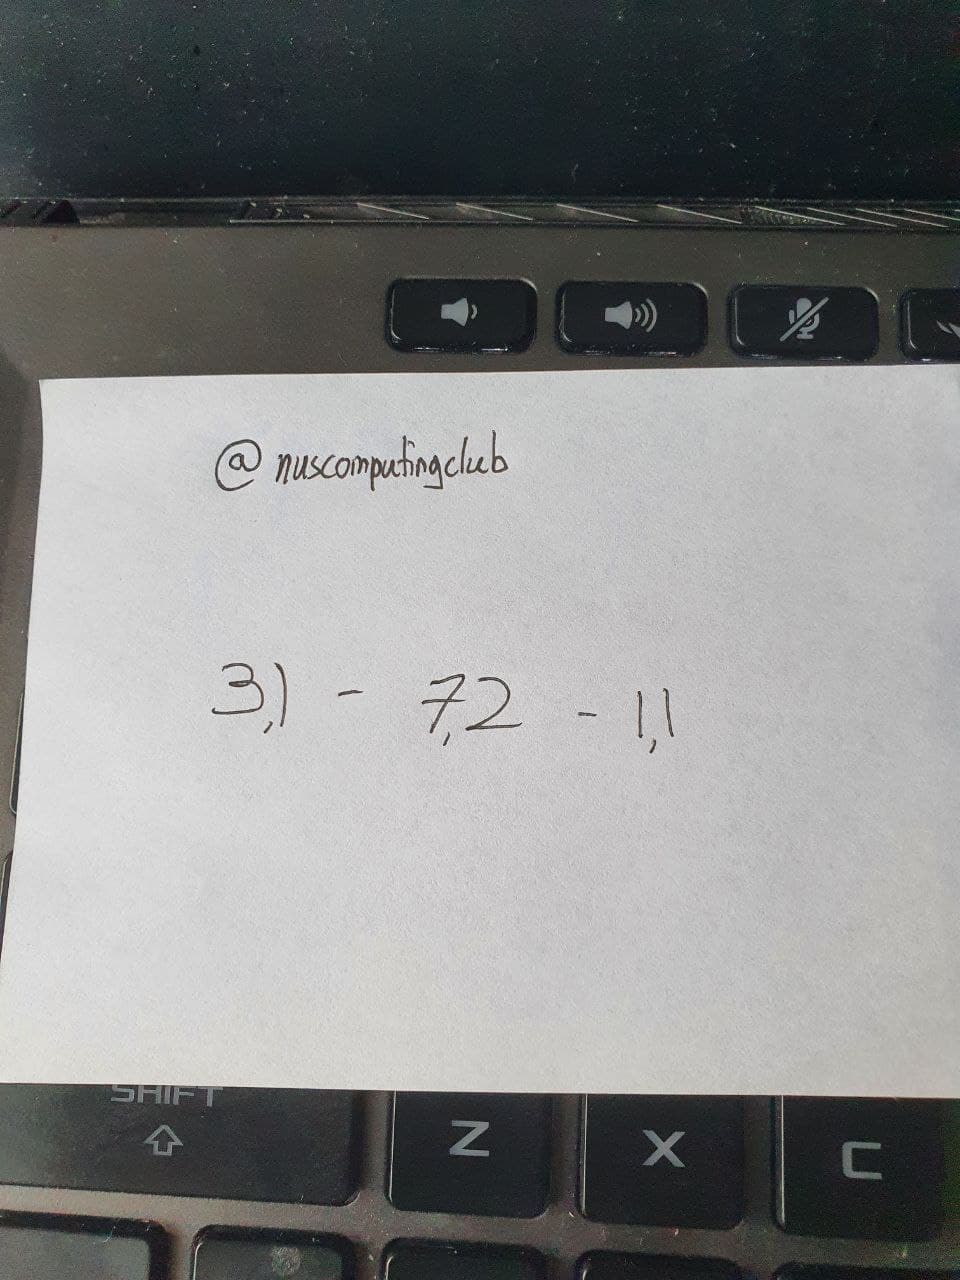 @nuscomputingclub
3,1 - 7,2 - 1,1
SHIFT
Z X C